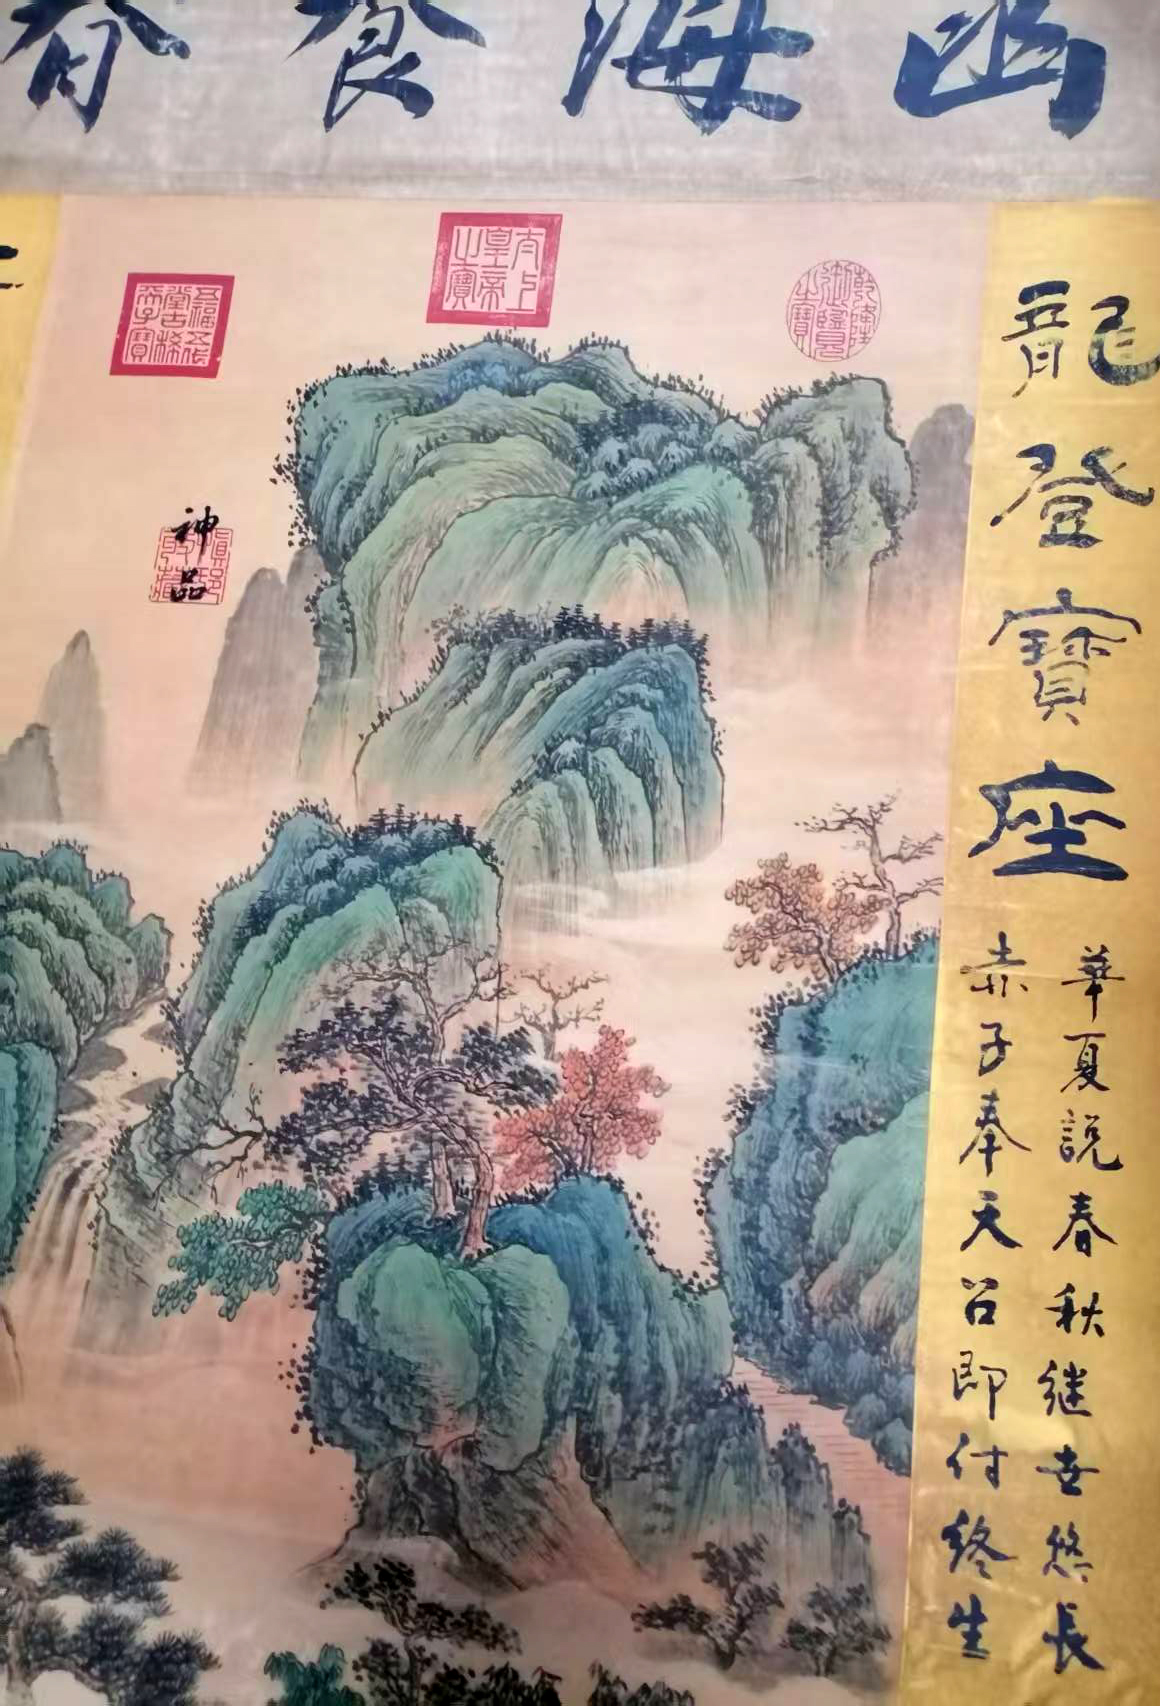 海食
龍登寶座
華夏説春秋继世悠長
赤子奉天召即付終生
乾隆御覽之寶
太上皇帝之寶
五福五代堂古稀天子寶
神品